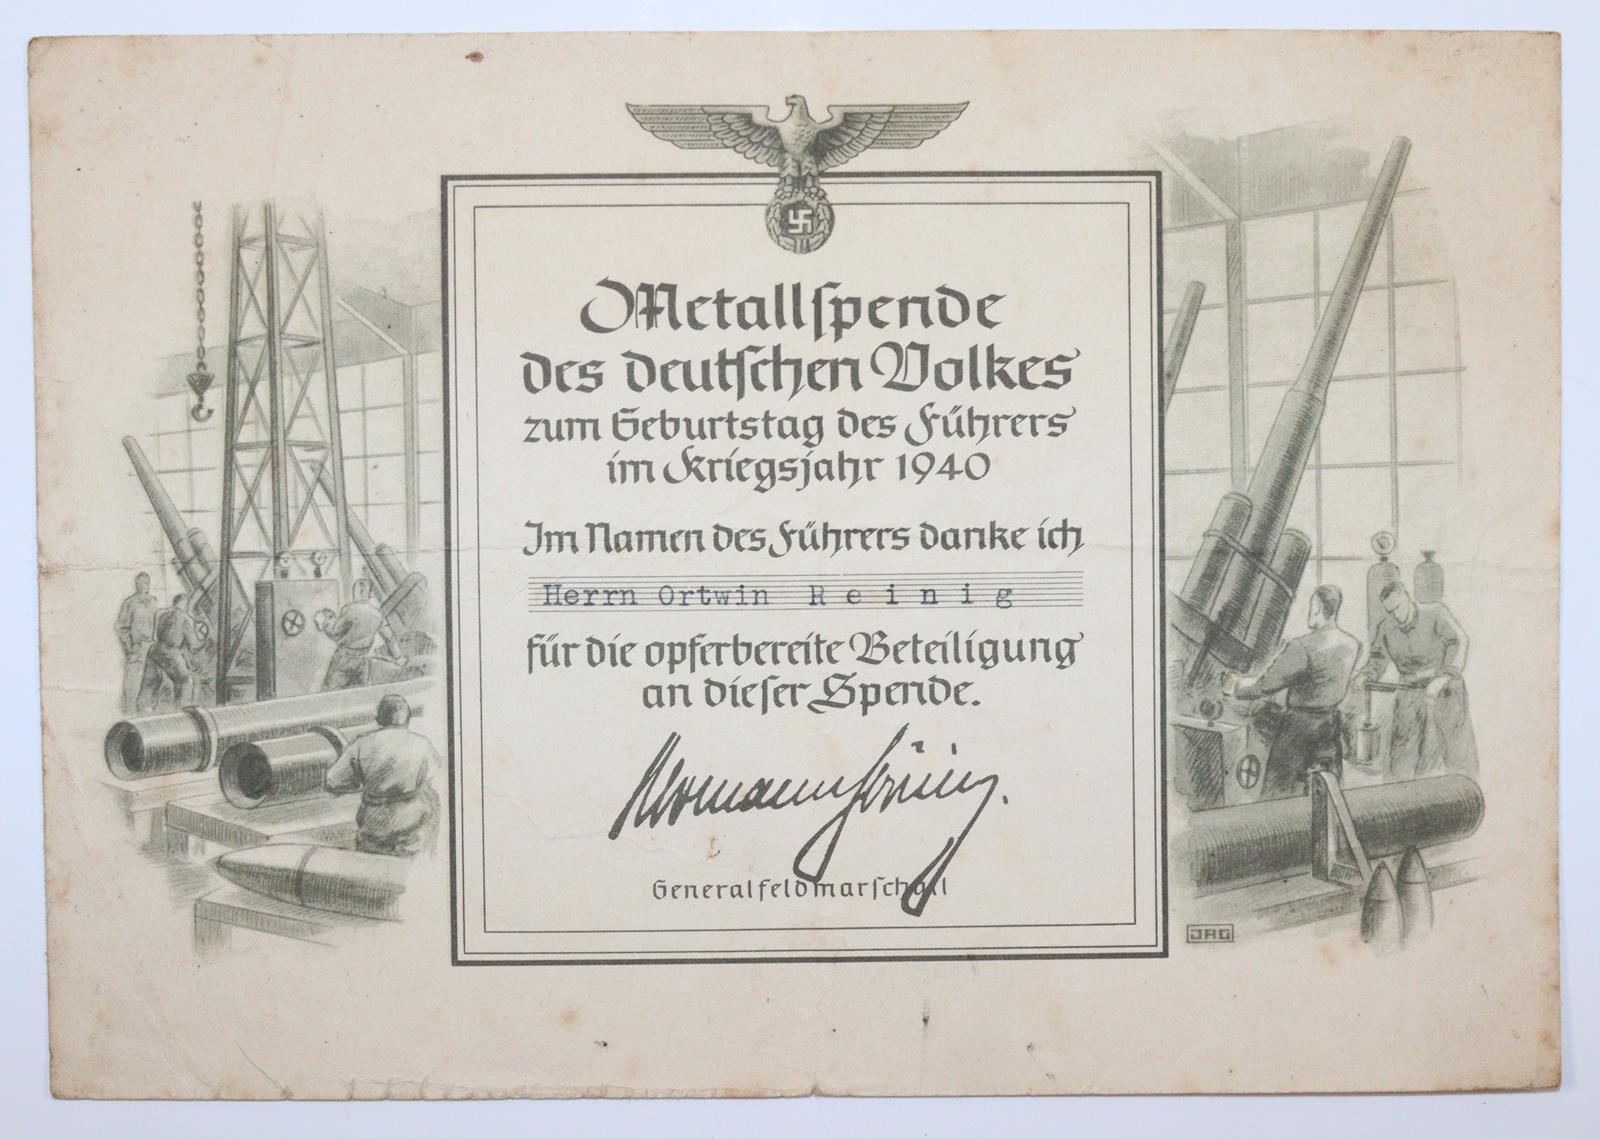 Metallspende
des deutschen Volkes
zum Geburtstag des Führers
im Kriegsjahr 1940
Im Namen des Führers danke ich
Herrn Ortwin Reinig
für die opferbereite Beteiligung
an dieser Spende.
Hermann Göring.
Generalfeldmarschall
JAG